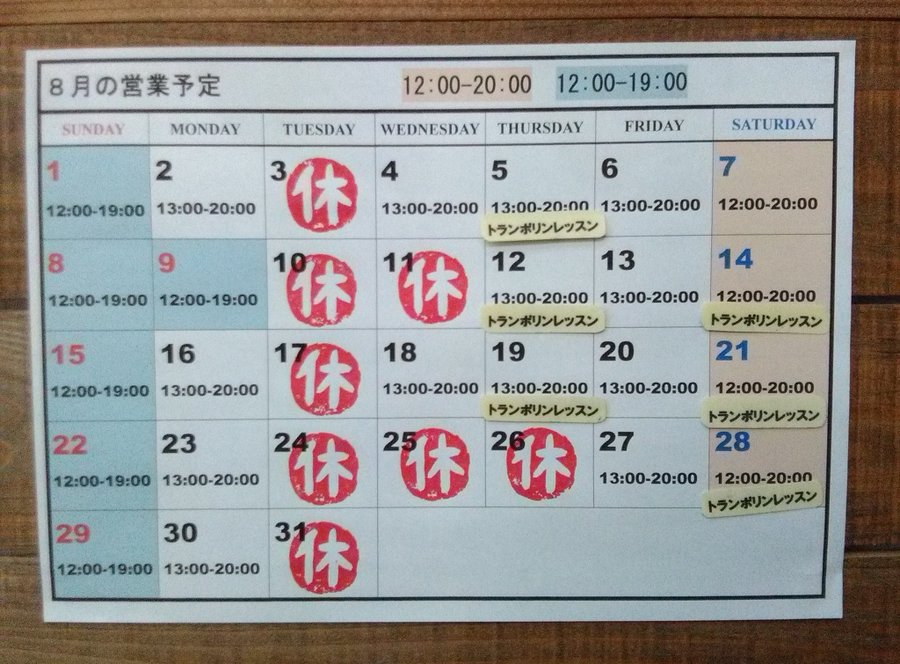 8月の営業予定 12:00-20:00 12:00-19:00
SUNDAY MONDAY TUESDAY WEDNESDAY THURSDAY FRIDAY SATURDAY
1 2 3 休 4 5 6 7
12:00-19:00 13:00-20:00 13:00-20:00 13:00-20:00 13:00-20:00 12:00-20:00
トランポリンレッスン
8 9 10 休 11 休 12 13 14
12:00-19:00 12:00-19:00 13:00-20:00 13:00-20:00 12:00-20:00
トランポリンレッスン トランポリンレッスン
15 16 17 休 18 19 20 21
12:00-19:00 13:00-20:00 13:00-20:00 13:00-20:00 13:00-20:00 12:00-20:00
トランポリンレッスン トランポリンレッスン
22 23 24 休 25 休 26 休 27 28
12:00-19:00 13:00-20:00 13:00-20:00 12:00-20:00
トランポリンレッスン
29 30 31 休
12:00-19:00 13:00-20:00